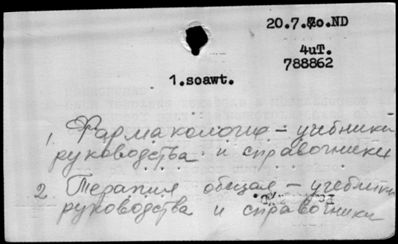 20.7.70.ND
4uT.
788862
1.soawt.
1, Фармакология – учебники
руководства и справочники
2. Терапия общая – учебники
руководства и справочники